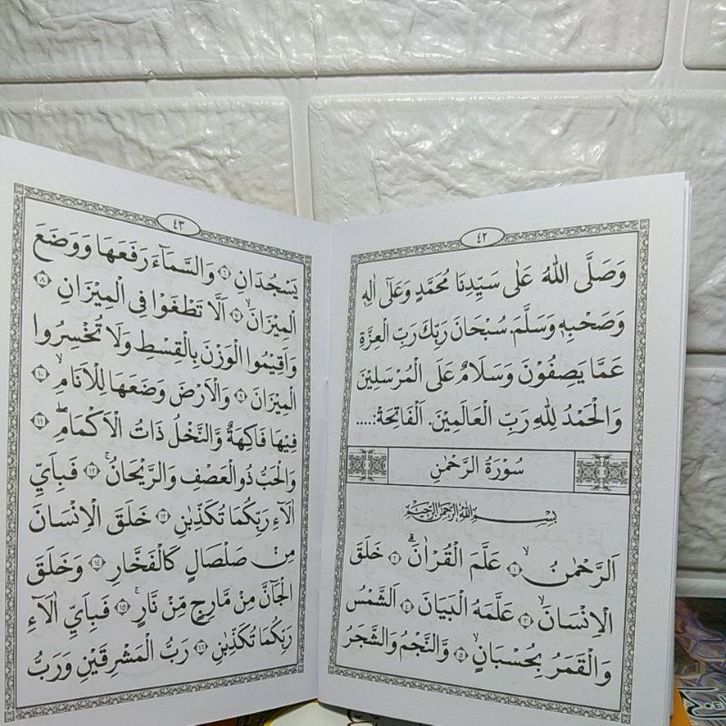 ٤٢
وَصَلَّى اللهُ عَلَى سَيِّدِنَا مُحَمَّدٍ وَعَلَى اٰلِهِ
وَصَحْبِهِ وَسَلَّمَ. سُبْحَانَ رَبِّكَ رَبِّ الْعِزَّةِ
عَمَّا يَصِفُوْنَ وَسَلَامٌ عَلَى الْمُرْسَلِيْنَ
وَالْحَمْدُ لِلهِ رَبِّ الْعَالَمِيْنَ. اَلْفَاتِحَةْ:....
سُوْرَةُ الرَّحْمٰنِ
بِسْمِ اللهِ الرَّحْمٰنِ الرَّحِيْمِ
اَلرَّحْمٰنُۙ ۝١ عَلَّمَ الْقُرْاٰنَۗ ۝٢ خَلَقَ
الْاِنْسَانَۙ ۝٣ عَلَّمَهُ الْبَيَانَ ۝٤ اَلشَّمْسُ
وَالْقَمَرُ بِحُسْبَانٍۙ ۝٥ وَّالنَّجْمُ وَالشَّجَرُ
٤٣
يَسْجُدَانِ ۝٦ وَالسَّمَاۤءَ رَفَعَهَا وَوَضَعَ
الْمِيْزَانَۙ ۝٧ اَلَّا تَطْغَوْا فِى الْمِيْزَانِ ۝٨
وَاَقِيْمُوا الْوَزْنَ بِالْقِسْطِ وَلَا تُخْسِرُوا
الْمِيْزَانَ ۝٩ وَالْاَرْضَ وَضَعَهَا لِلْاَنَامِۙ ۝١٠
فِيْهَا فَاكِهَةٌ وَّالنَّخْلُ ذَاتُ الْاَكْمَامِۖ ۝١١
وَالْحَبُّ ذُو الْعَصْفِ وَالرَّيْحَانُۚ ۝١٢ فَبِاَيِّ
اٰلَاۤءِ رَبِّكُمَا تُكَذِّبٰنِ ۝١٣ خَلَقَ الْاِنْسَانَ
مِنْ صَلْصَالٍ كَالْفَخَّارِ ۝١٤ وَخَلَقَ
الْجَاۤنَّ مِنْ مَّارِجٍ مِّنْ نَّارٍۚ ۝١٥ فَبِاَيِّ اٰلَاۤءِ
رَبِّكُمَا تُكَذِّبٰنِ ۝١٦ رَبُّ الْمَشْرِقَيْنِ وَرَبُّ